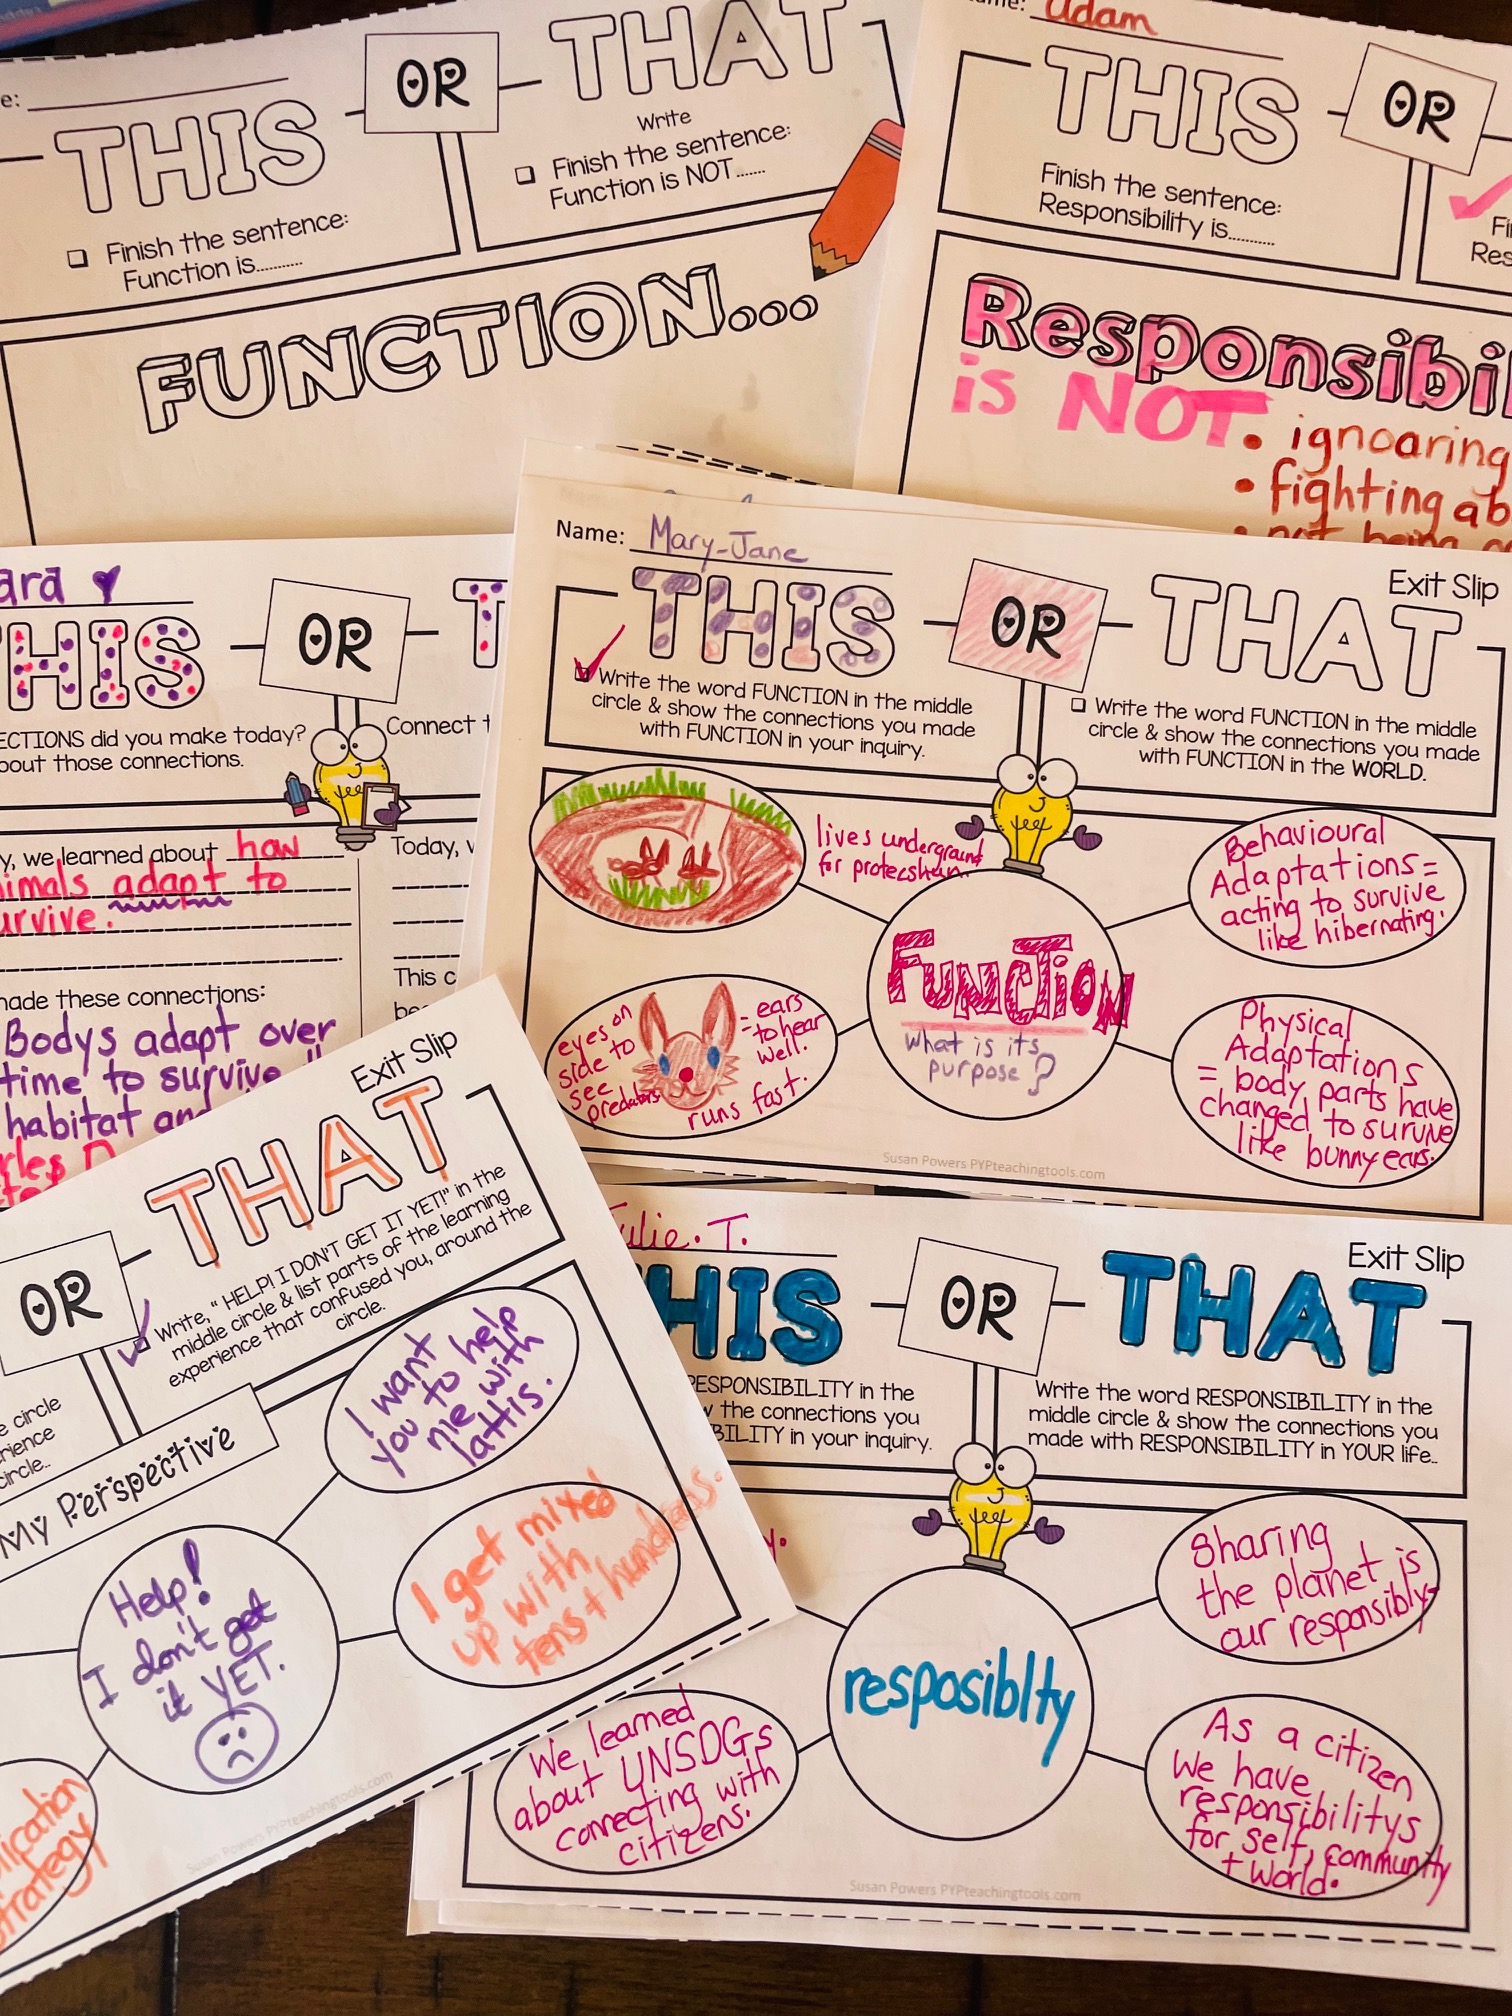 THIS OR THAT
Finish the sentence:
Function is..........
Write
Finish the sentence:
Function is NOT.......
FUNCTION...
Adam
THIS OR
Finish the sentence:
Responsibility is..........
is NOT
• ignoaring
• fighting
Name: Mary-Jane
Exit Slip
THIS OR THAT
Write the word FUNCTION in the middle
circle & show the connections you made
with FUNCTION in your inquiry.
Write the word FUNCTION in the middle
circle & show the connections you made
with FUNCTION in the WORLD.
lives underground
for protecshun
Behavioural
Adaptations =
acting to survive
like hibernating.
FUNCTION
What is its
purpose?
eyes on
side to
see
predators
= ears
to hear
well.
runs fast.
Physical
Adaptations
= body parts have
changed to survive
like bunny ears.
Susan Powers PYPteachingtools.com
OR
did you make today?
about those connections.
Connect
we learned about how
adapt to
made these connections:
Bodys adapt over
time to survive
habitat
Today,
This
Exit Slip
OR THAT
Write, " HELP! I DON'T GET IT YET!" in the
middle circle & list parts of the learning
experience that confused you, around the
circle.
circle
My Perspective
I want
you to help
me with
lattis.
Help!
I don't get
it YET.
I get mixed
up with
tens + hundreds.
Susan Powers PYPteachingtools.com
Julie. T.
Exit Slip
OR THAT
RESPONSIBILITY in the
the connections you
in your inquiry.
Write the word RESPONSIBILITY in the
middle circle & show the connections you
made with RESPONSIBILITY in YOUR life..
Sharing
the planet is
our responsibly
resposiblty
We learned
about UNSDGs
connecting with
citizens.
As a citizen
We have
responsibilitys
for self, community
+ World.
Susan Powers PYPteachingtools.com